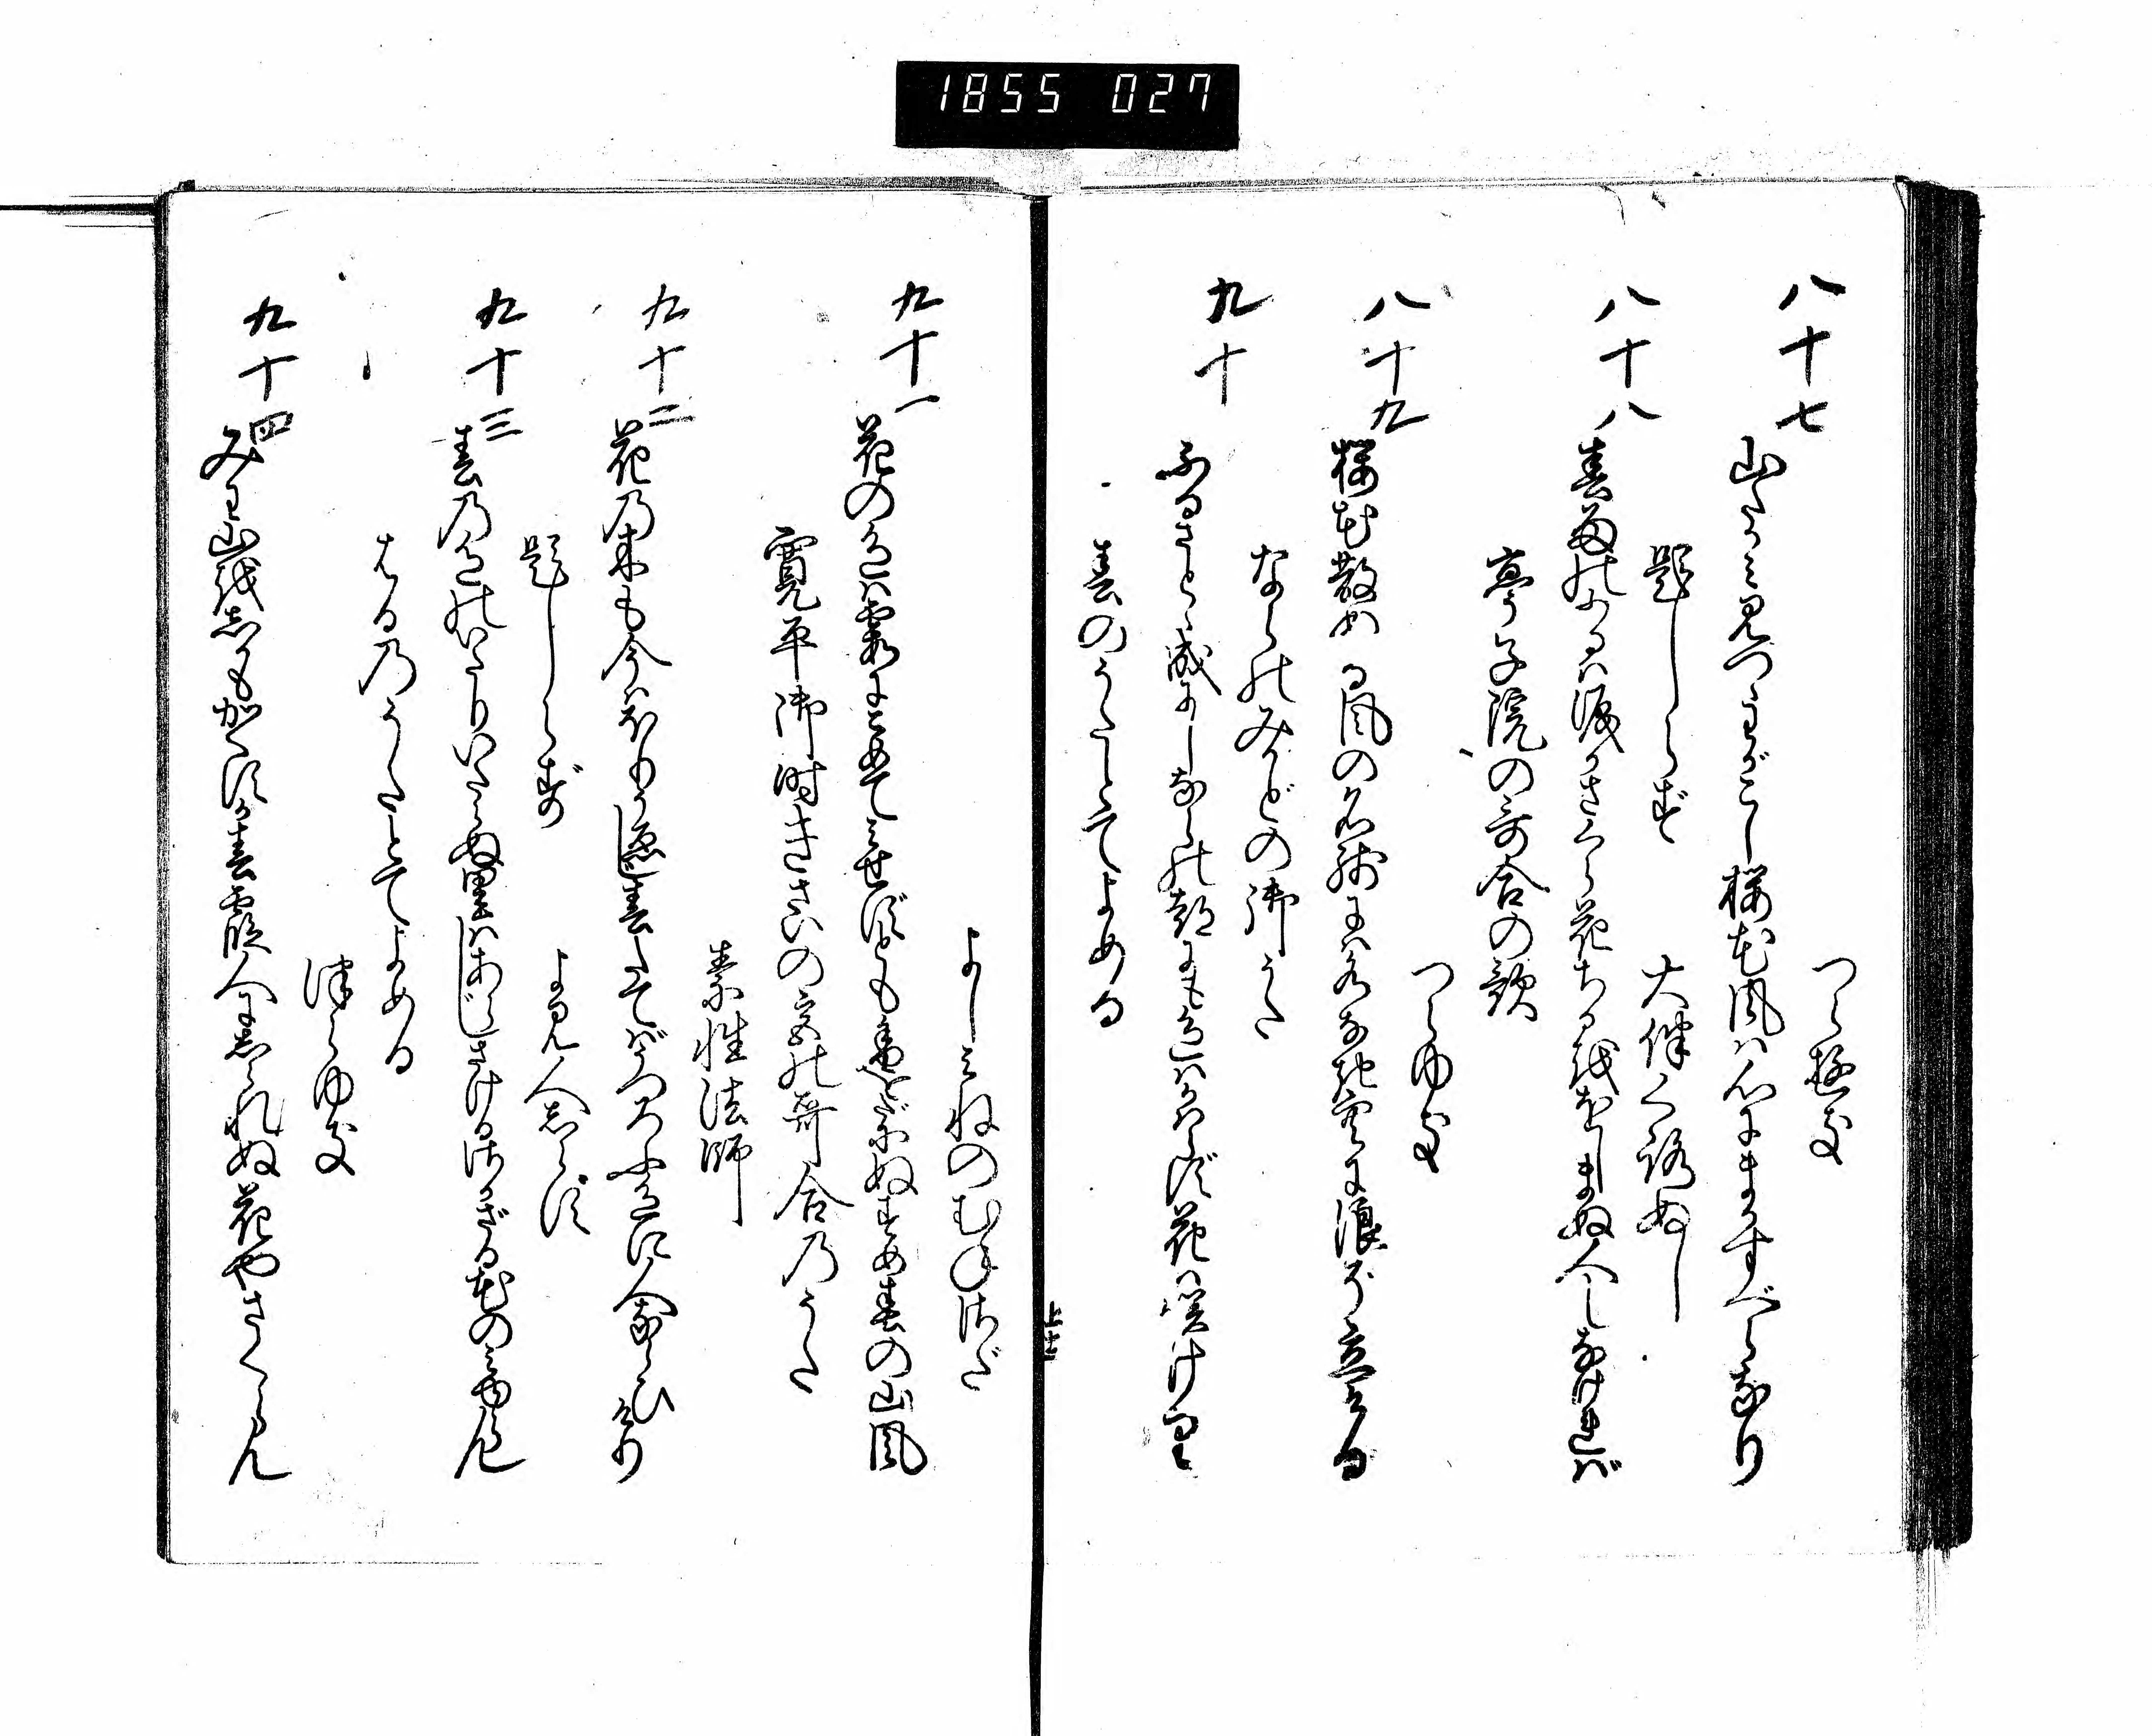 1855 027
つらゆき
八十七
山たかみ見つゝわがこし桜花風は心にまかすべらなり
題しらず
大伴くろぬし
八十八
春雨のふるは涙かさくら花ちるををしまぬ人しなければ
亭子院の哥合の歌
つらゆき
八十九
桜花散ぬる風の名残には水なき空に浪ぞ立ける
ならのみかどの御うた
九十
ふるさとゝ成にしならの都にも色はかはらず花は咲けり
春のうたとてよめる
よしみねのむねさだ
九十一
花の色は霞にこめてみせずとも香をだにぬすめ春の山風
寛平御時きさいの宮の哥合のうた
素性法師
九十二
花の木も今はほりうゑじ春たてばうつろふ色に人ならひけり
題しらず
よみ人しらず
九十三
春の色のいたりいたらぬ里はあらじさけるさかざる花のみゆらん
はるのうたとてよめる
つらゆき
九十四
みわ山をしかもかくすか春霞人にしられぬ花やさくらん